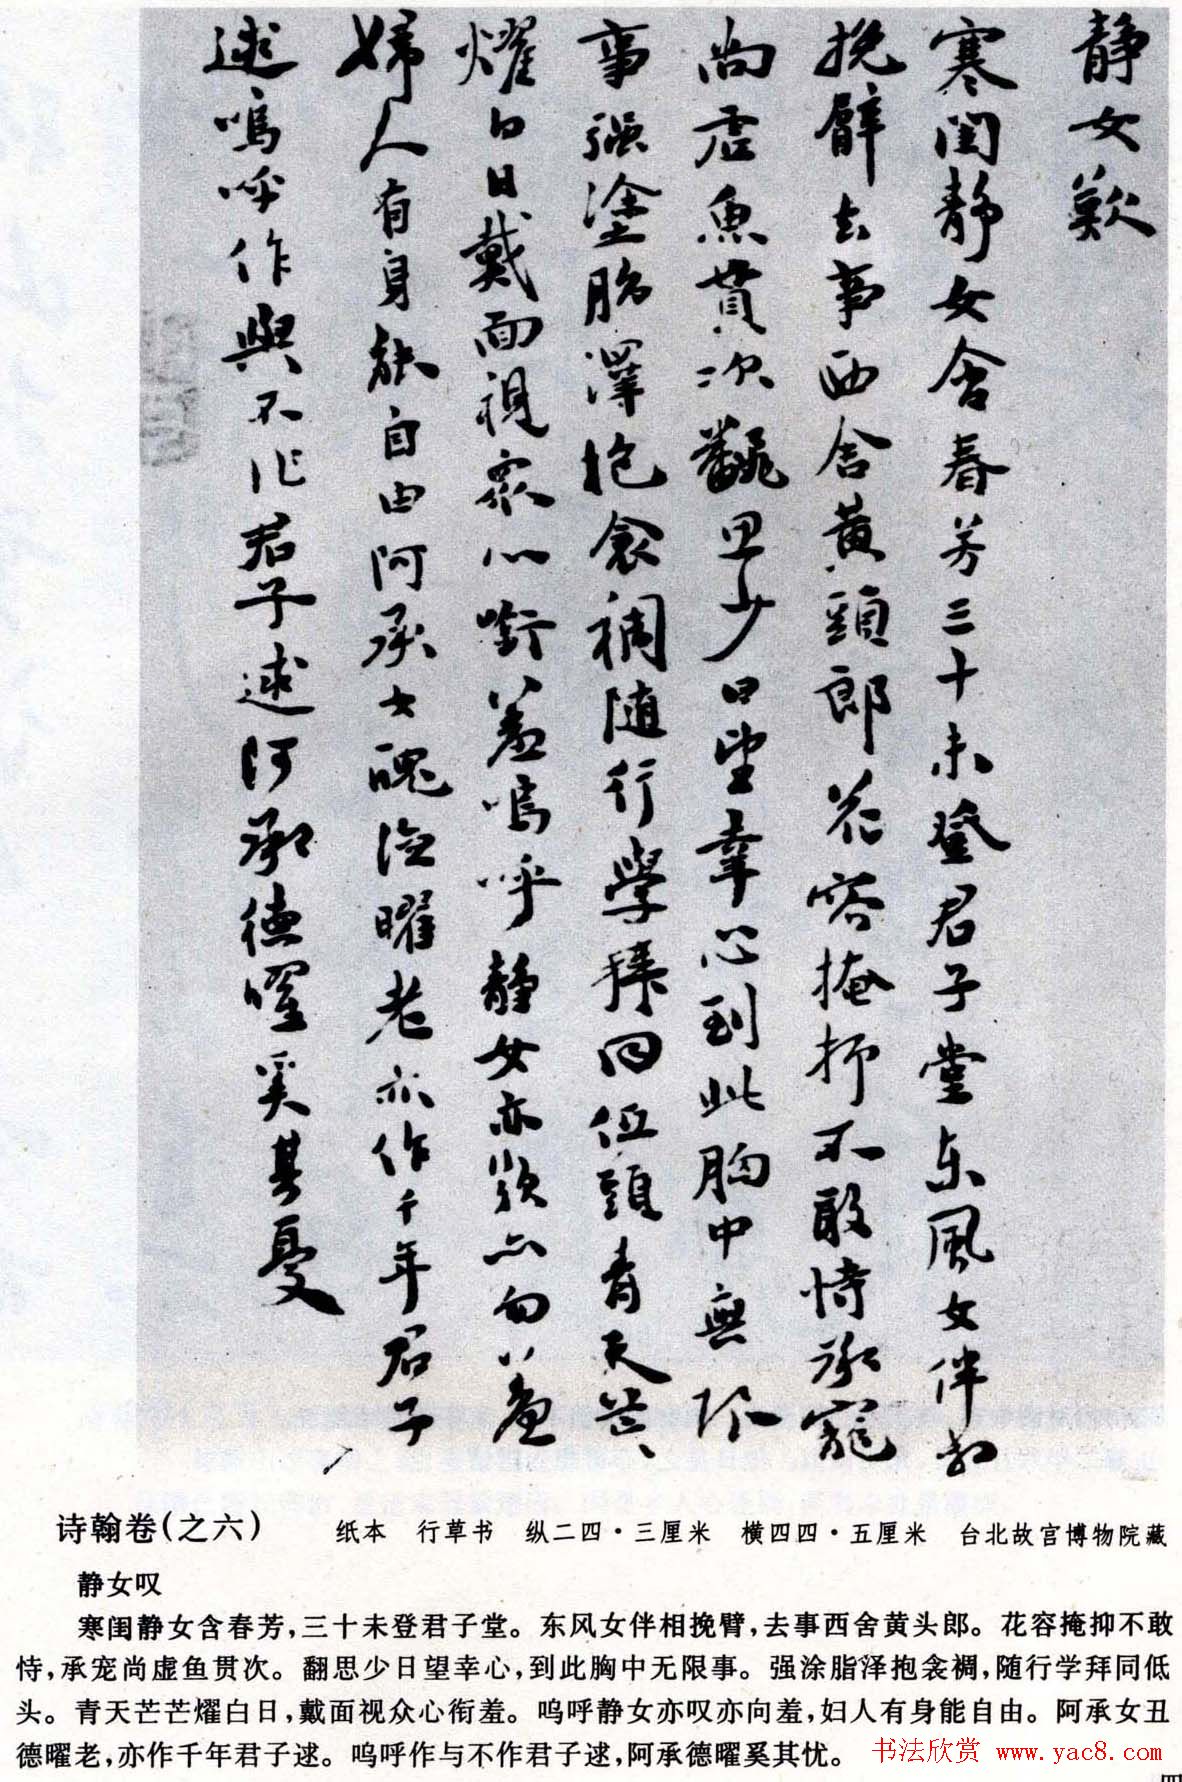 静女歎
寒闺静女含春芳三十未登君子堂东風女伴相
挽臂去事西舍黄頭郎花容掩抑不敢恃承寵
尚虚魚貫次翻思少日望幸心到此胸中無限
事强塗脂澤抱衾裯随行學拜同低頭青天芒芒
燿白日戴面視衆心衔羞嗚呼静女亦歎亦向羞
婦人有身能自由阿承女醜德曜老亦作千年君子
逑嗚呼作與不作君子逑阿承德曜奚其憂
诗翰卷(之六) 纸本 行草书 纵二四·三厘米 横四四·五厘米 台北故宫博物院藏
静女叹
寒闺静女含春芳,三十未登君子堂。东风女伴相挽臂,去事西舍黄头郎。花容掩抑不敢
恃,承宠尚虚鱼贯次。翻思少日望幸心,到此胸中无限事。强涂脂泽抱衾裯,随行学拜同低
头。青天芒芒燿白日,戴面视众心衔羞。呜呼静女亦叹亦向羞,妇人有身能自由。阿承女丑
德曜老,亦作千年君子逑。呜呼作与不作君子逑,阿承德曜奚其忧。
书法欣赏 www.yac8.com